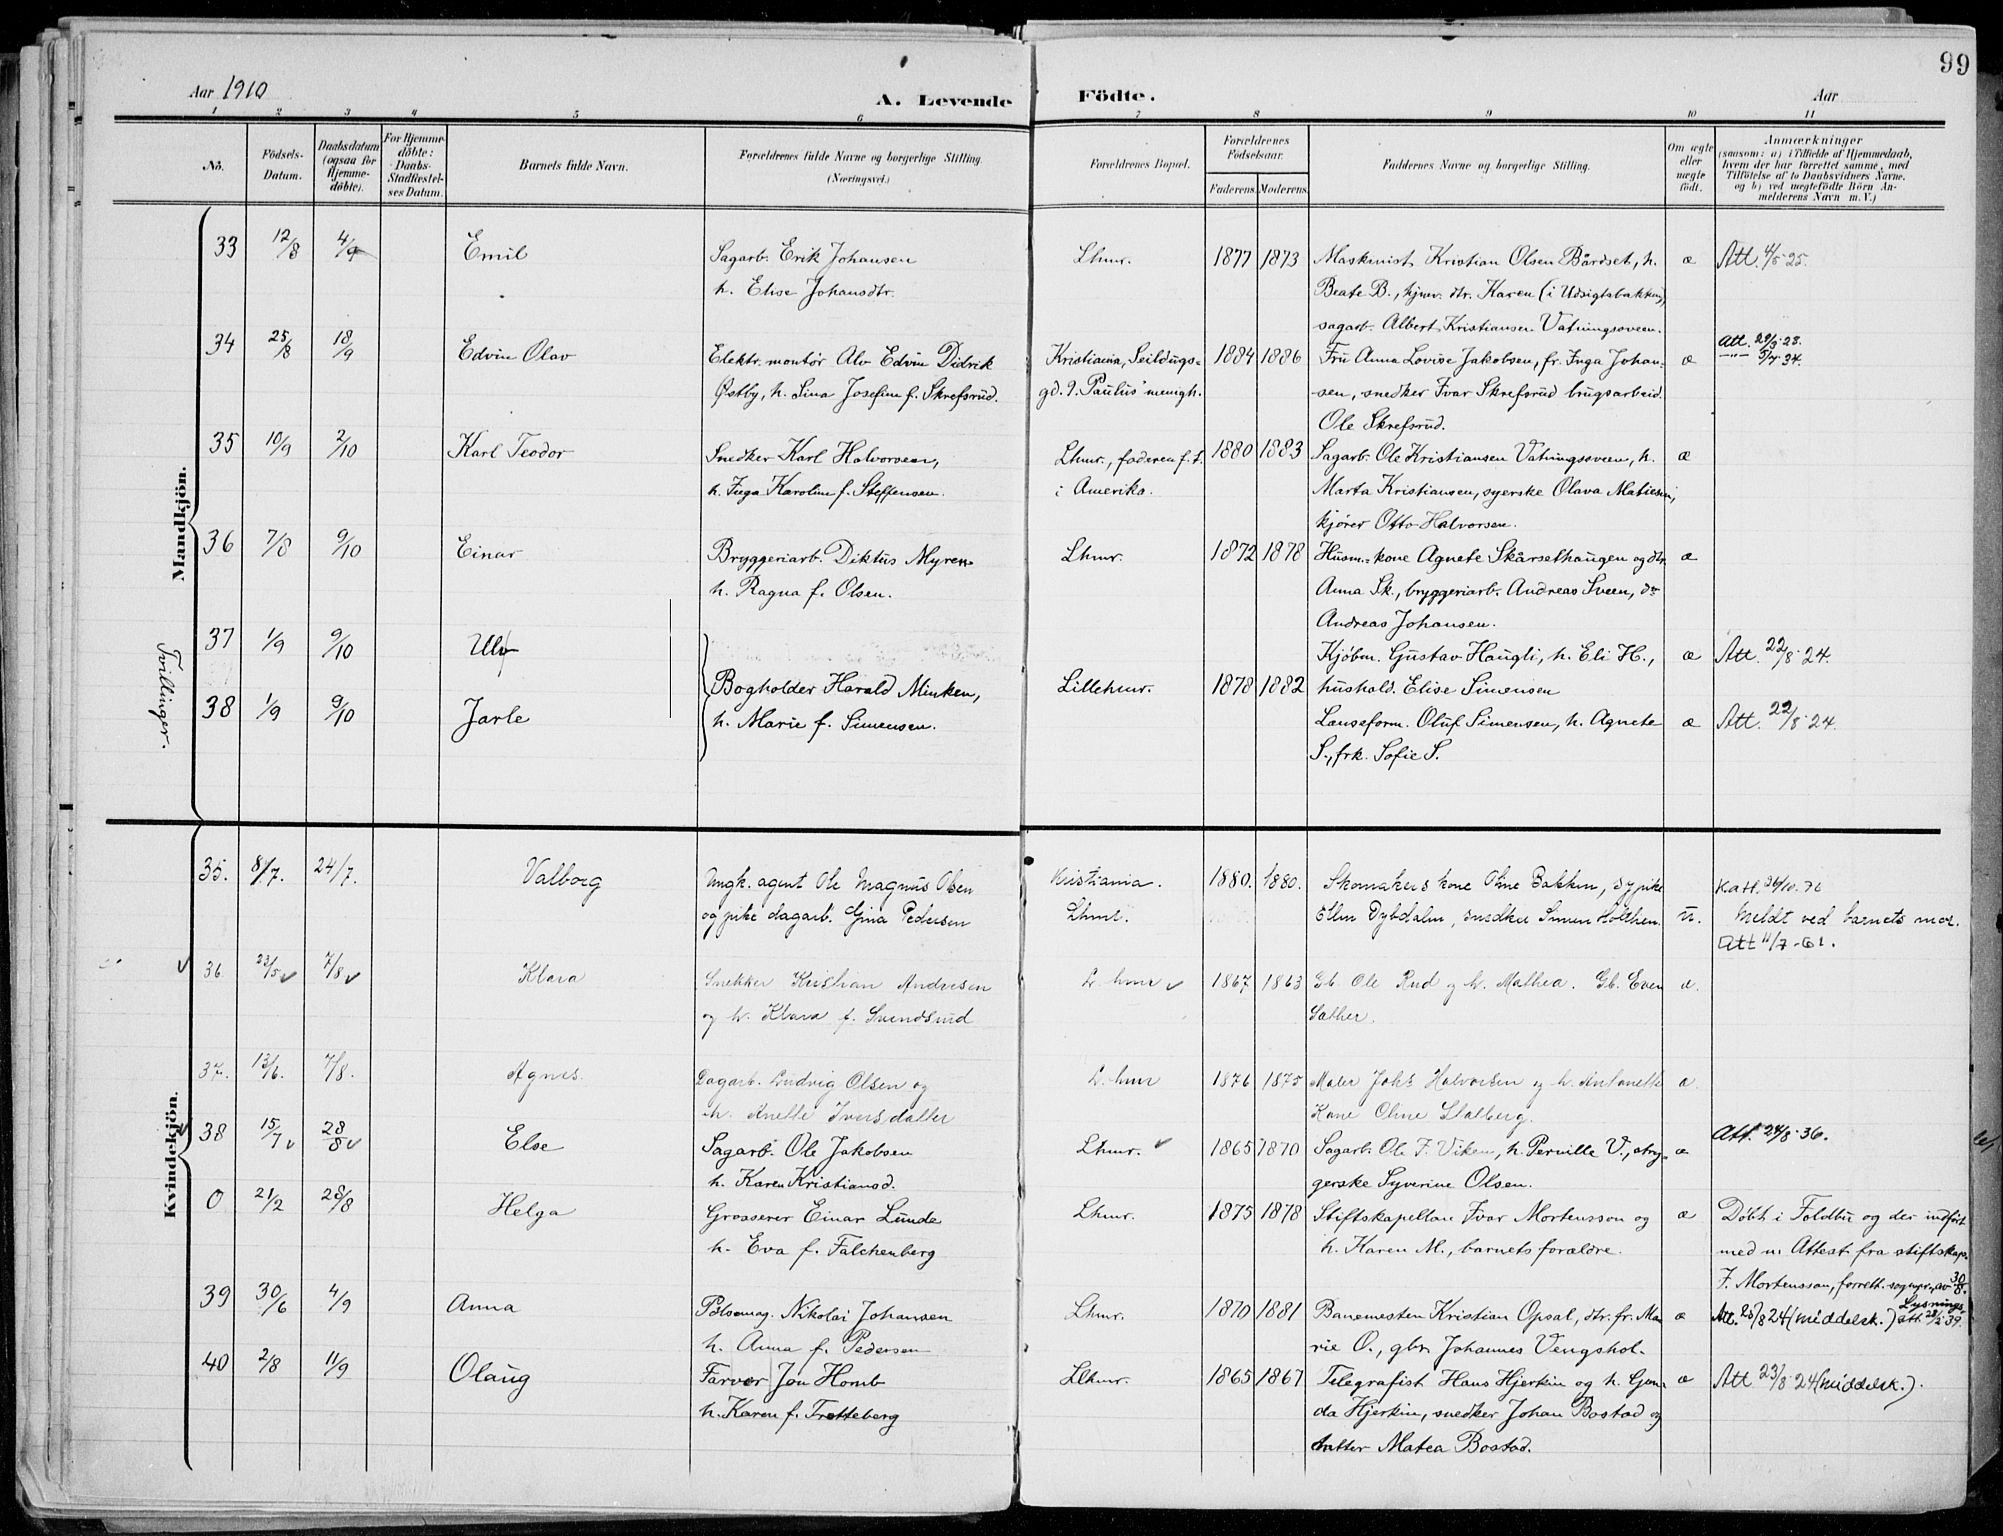 99
Aar 1910
A. Levende Födte.
Aar
1 2 3 4 5 6 7 8 9 10 11
No.
Födsels-Datum.
Daabsdatum (ogsaa for Hjemmedöbte).
For Hjemmedöbte: Daabs-Stadfæstelses Datum.
Barnets fulde Navn.
Forældrenes fulde Navne og borgerlige Stilling. (Næringsvei.)
Forældrenes Bopæl.
Forældrenes Födselsaar.
Faderens. Moderens.
Faddernes Navne og borgerlige Stilling.
Om ægte eller uægte födt.
Anmærkninger
(saasom: a) i Tilfælde af Hjemmedaab,
hvem der har forrettet samme, med
Tilföielse af to Daabsvidners Navne,
og b) ved uægtefödte Börn Anmelderens Navn m. V.)
Mandkjön.
33 12/8 4/9 Emil Sagarb. Erik Johansen Lhmr. 1877 1873 Maskinist Kristian Olsen Bårdset, h. æ Att. 4/5 25.
h. Elise Johansdtr. Beate B., hjmv. dtr. Karen (i Udsigtsbakken),
sagarb. Albert Kristiansen Vatningsveen.
34 25/8 18/9 Edvin Olav Elektr. montør Alv Edvin Didrik Kristiania, Seildugs= 1884 1886 Fru Anna Lovise Jakobsen, fr. Inga Johan= æ Att. 29/3 23.
Østby, h. Lina Josefine f. Skrefsrud. gd. 9. Paulus' menigh. sen, snedker Ivar Skrefsrud brugsarbeid. —"— 5/7 34.
Ole Skrefsrud.
35 10/9 2/10 Karl Teodor Snedker Karl Halvorsen, Lhmr., faderen f.t. 1880 1883 Sagarb. Ole Kristiansen Vatningsveen, h. æ
h. Inga Karoline f. Steffensen. i Amerika. Marta Kristiansen, syerske Olava Matiesen,
kjører Otto Halvorsen.
36 7/8 9/10 Einar Bryggeriarb. Diktus Myren Lhmr. 1872 1878 Husm.=kone Agnete Skårsethaugen og dtr. æ
h. Ragna f. Olsen. Anna Sk., bryggeriarb. Andreas Sveen, do
Andreas Johansen.
Tvillinger.
37 1/9 9/10 Ulv Kjøbm. Gustav Haugli, h. Eli H., æ Att. 22/8 24.
Boghol­der Harald Minken, Lillehmr. 1878 1882 hushold. Elise Simensen
38 1/9 9/10 Jarle h. Marie f. Simensen. Lanseform. Oluf Simensen, h. Agnete æ Att. 22/8 24.
S., frk. Sofie S.
Kvindekjön.
35. 8/7. 24/7. Valborg Ungk. agent Ole Magnus Olsen Kristiania. 1880. 1880. Skomakers kone Oline Bakken, sypike
og pike dagarb. Gina Pedersen Lhmr. Elin Dybdalm, snedker Simen Holthen. u. Meldt ved barnets mor.
Att 11/7-61.
36 23/5 7/8 Klara Snekker Kristian Andresen L.hmr 1867 1863 Gb. Ole Rud og h. Mathea. Gb. Even æ.
og h. Klara f. Svendsrud Sæther.
37. 13/6. 7/8. Agnes. Dagarb. Ludvig Olsen og L.hmr 1876 1875 Maler Johs Halvorsen og h. Antonette æ
h. Anette Iversdatter Kone Oline Stalberg.
38 15/7 28/8 Else Sagarb. Ole Jakobsen Lhmr. 1865 1870 Sagarb. Ole F. Viken, h. Pernille V., stry= æ Att. 24/8 36.
h. Karen Kristiansd. gerske Syverine Olsen.
0 21/2 28/8 Helga Grosserer Einar Lunde Lhmr. 1875 1878 Stiftskapellan Ivar Mortensson og æ Døbt i Foldbu og der indført
h. Eva f. Falchenberg h. Karen M., barnets forældre. med n. Attest fra stiftskap.
I. Mortensson, forrett. sognepr., av 30/8.
39 30/6 4/9 Anna Pølsemag. Nikolai Johansen Lhmr. 1870 1881 Banemesten Kristian Opsal, dtr. fr. Ma= æ Att. 25/8 24 (middelsk.) Lysnings att. 28/2 39.
h. Anna f. Pedersen rie O., gbr. Johannes Vengshol.
40 2/8 11/9 Olaug Farver Jon Homb Llhmr. 1865 1867 Telegrafist Hans Hjerkin og h. Gun= æ Att 23/8 24 (middelsk.).
h. Karen f. Tretteberg da Hjerkin, snedker Johan Bostad og
datter Matea Bostad.